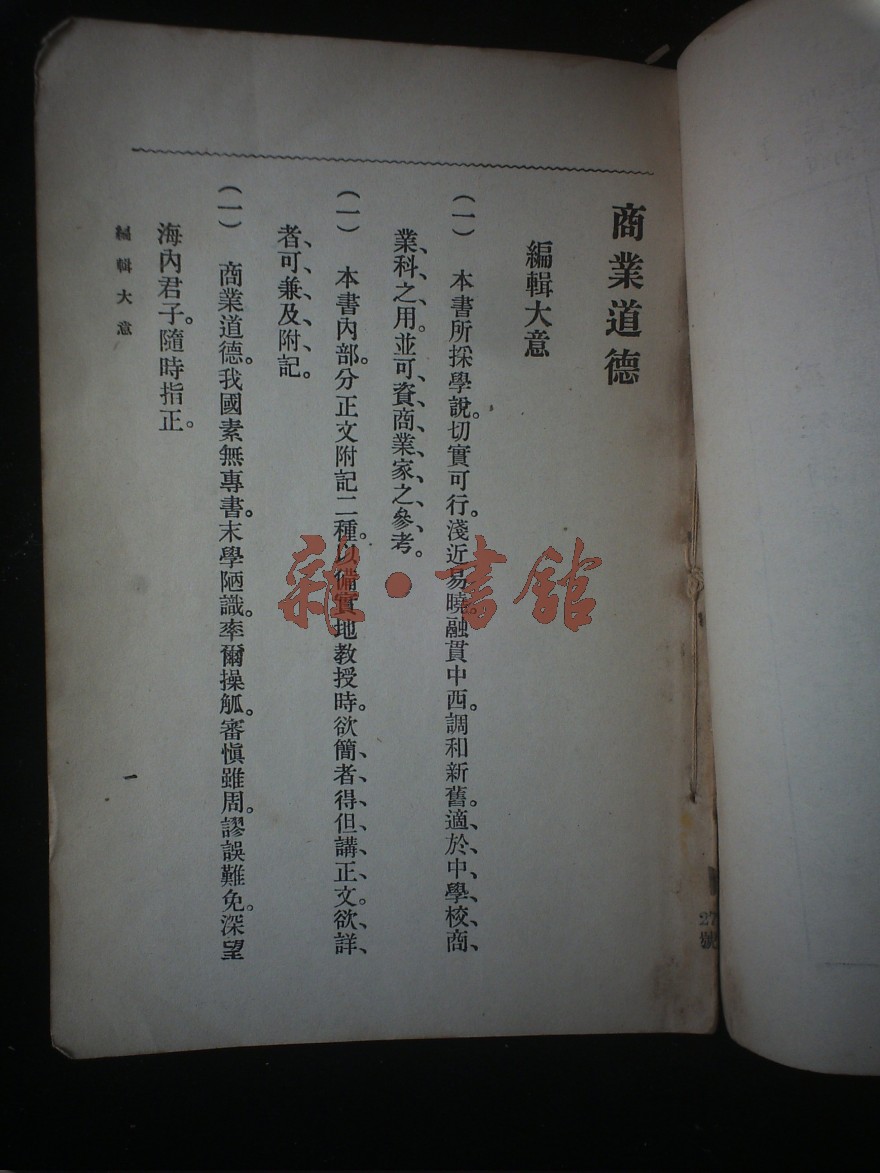 商業道德
編輯大意
(一) 本書所採學說。切實可行。淺近易曉。融貫中西。調和新舊。適、於、中、學、校、商、
業、科、之、用。並可、資、商、業、家、之、參、考。
(一) 本書內部。分正文附記二種。以備實地教授時。欲簡、者、得、但、講、正、文。欲、詳、
者、可、兼、及、附、記。
(一) 商業道德。我國素無專書。末學陋識。率爾操觚。審慎雖周。謬誤難免。深望
海內君子。隨時指正。
編輯大意
一
雜·書館
27
號